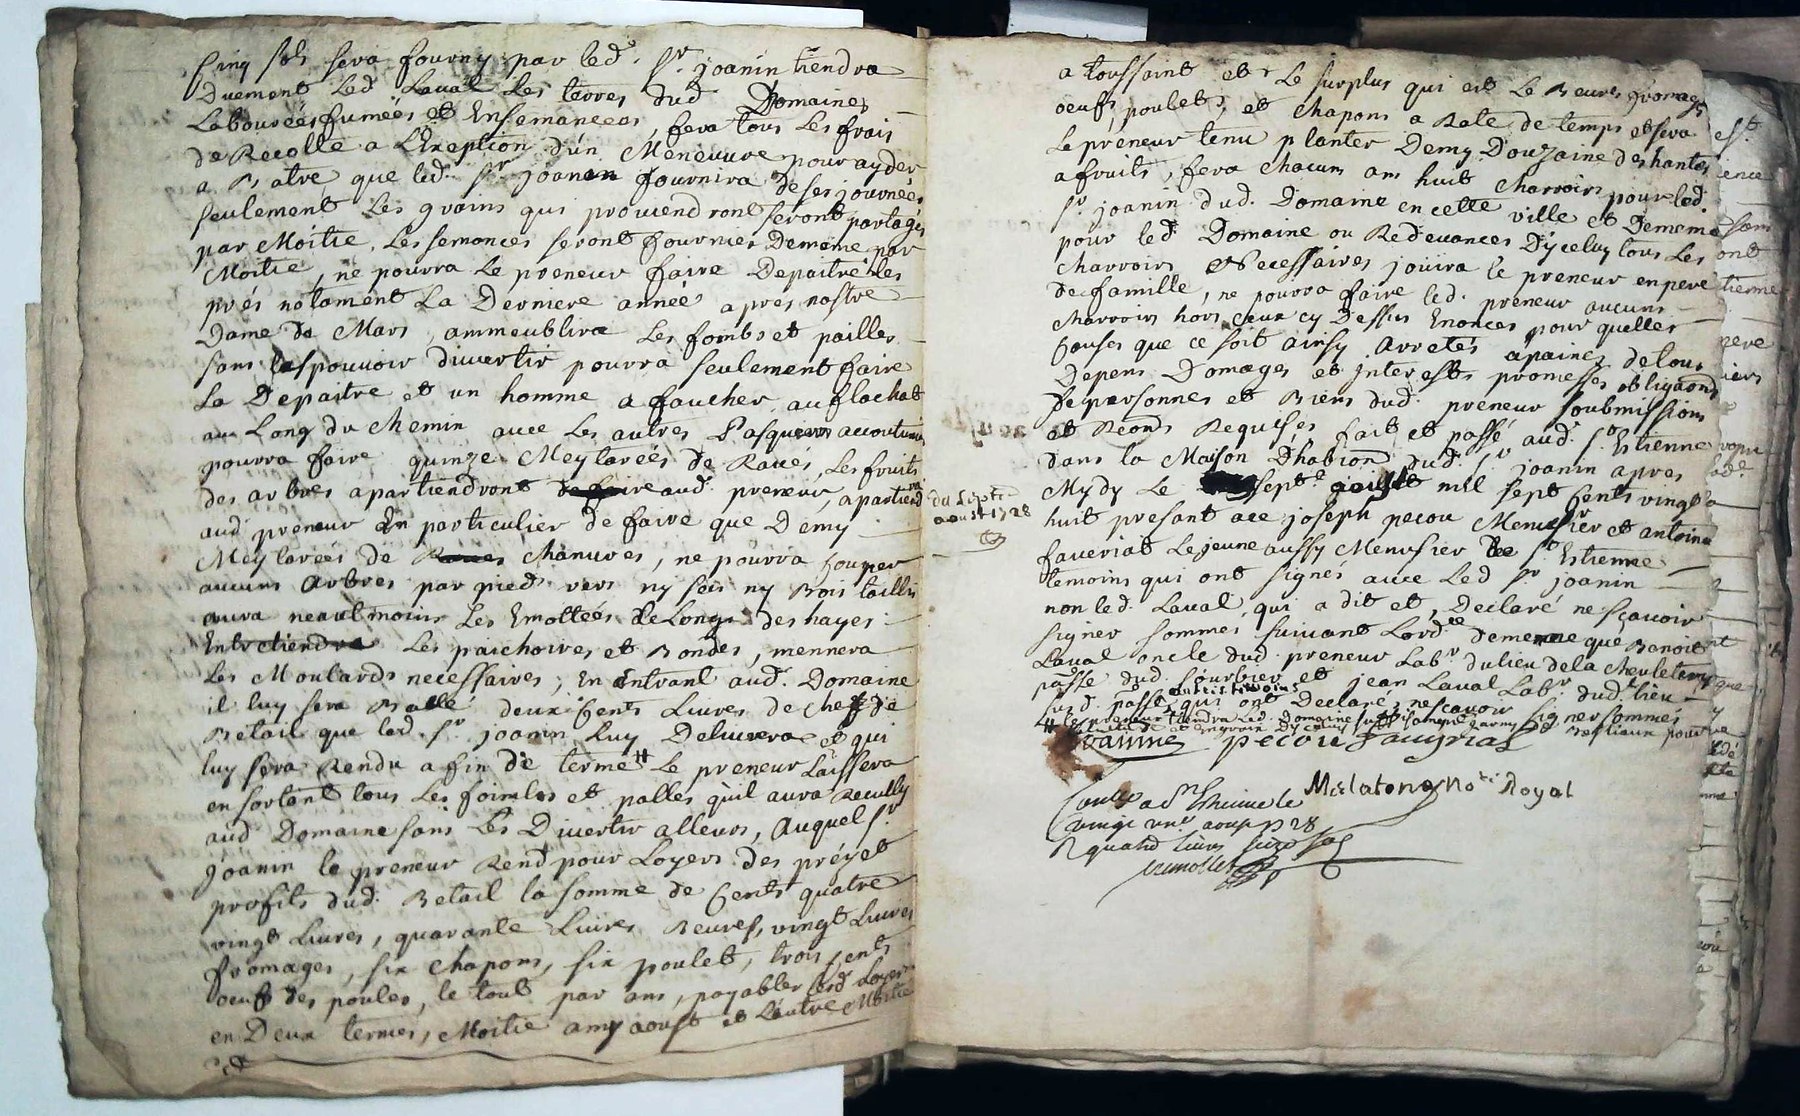 Cinq sols sera fourny par led. Sr. joanin tiendra
Duement Led Laval Les terres dud Domaines
Labourées fumées et Ensemancées, fera tous Les frais
de Recolte a L'Exeption d'un Meneuvre pour ayder
a Batre que led. Sr joanin fournira de ses journées
seulement Les grains qui proviendront seront partagés
par Moitie, Les semences seront fournies Demême par
Moitie, ne pourra Le preneur faire Depaitre les
prés notament La Derniere année apres nostre
Dame de Mars, ammeublira Les fombs et pailles
sans les pouvoir divertir pourra seulement faire
Le Depaitre et un homme a faucher au flachat
au Long du chemin avec Les autres Pasquers accoutumés
pourra faire quinze Meytarées de Raves, Les fruits
des arbres apartiendront aud. preneur, apartiendra
aud preneur En particulier de faire que Demy
Meytarées de Chanvres, ne pourra couper
aucuns arbres par pied vers ny secs ny Bois taillis
aura neaulmoins Les Emottées de Longs des hayes
Entretiendra Les paichoires et Bondes, mennera
Les Moulards necessaires, En Entrant aud. Domaine
il luy sera Ballé deux Cents Livres de Chepté
Betail que led. Sr. joanin Luy Delivrera et qui
luy sera Rendu a fin de terme # Le preneur Laissera
en sortant tous Les foins et palles qu'il aura Recully
aud Domaine sans Les Divertir alleurs, Auquel Sr
joanin le preneur Rend pour Loyers des prés et
profits dud. Betail la somme de Cents quatre
vingt Livres, quarante Livres Beures, vingt Livres
fromages, six chapons, six poulets, trois cents
oeufs des poules, le tout par ans, payables led Loyers
en Deux termes, Moitie a my aoust et L'autre Moitie
a toussaint et Le surplus qui est Le Beure fromages
oeufs, poulets, et Chapons a Rate de temps et sera
Le preneur tenu planter Demy Douzaine des hantes
a fruits, fera chacuns ans huit charroirs pour led
Sr joanin dud. Domaine en cette ville et Demême
pour led Domaine ou Redevances D'yceluy tous Les
charroirs Necessaires jouira Le preneur en pere
de famille, ne pourra faire led. preneur aucuns
charroirs hors ceux cy Dessus Enoncés pour quelles
Causes que ce soit ainsy Arretés apaines de tous
Depens Domages et jnterests promesses obligaons
de personnes et Biens dud. preneur soubmissions
et Reons Requises fait et passé aud. St. Estienne
dans la Maison D'habaon dud. Sr joanin apres
Mydy Le sept aoust mil sept Cents vingt
du sept
aoust 1728
huit present ace joseph pecou Menusier et antoine
faveriat Le jeune aussy Menusier de St Estienne
temoins qui ont signés avec Led Sr joanin
non led. Laval, qui a dit et Declaré ne sçavoir
signer sommés suivant Lordce de meme que Benoit
Laval oncle dud preneur Labr du lieu de la
passe dud. sourbier et jean Laval Labr. dud. Lieu
sud. passe, qui ont Declaré ne scavoir signer sommés
autres temoins
# Le preneur tiendra Led. Domaine
joanine pecou faveriat
Mclatone No.re Royal
Conlle a St Estienne le
vingt un aoust 1728
R quatre livres seize sols